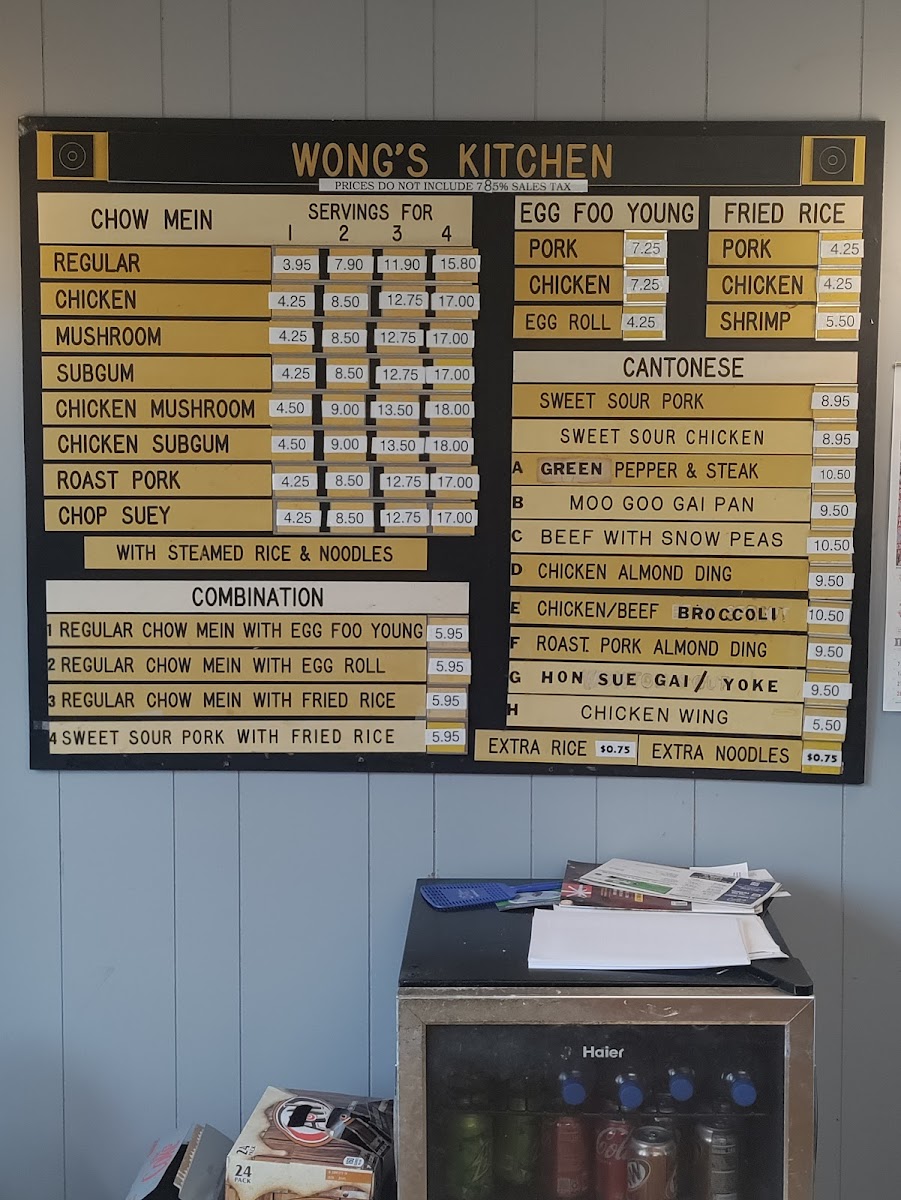 WONG'S KITCHEN
PRICES DO NOT INCLUDE 7.85% SALES TAX
CHOW MEIN SERVINGS FOR
1 2 3 4
REGULAR 3.95 7.90 11.90 15.80
CHICKEN 4.25 8.50 12.75 17.00
MUSHROOM 4.25 8.50 12.75 17.00
SUBGUM 4.25 8.50 12.75 17.00
CHICKEN MUSHROOM 4.50 9.00 13.50 18.00
CHICKEN SUBGUM 4.50 9.00 13.50 18.00
ROAST PORK 4.25 8.50 12.75 17.00
CHOP SUEY 4.25 8.50 12.75 17.00
WITH STEAMED RICE & NOODLES
COMBINATION
1 REGULAR CHOW MEIN WITH EGG FOO YOUNG 5.95
2 REGULAR CHOW MEIN WITH EGG ROLL 5.95
3 REGULAR CHOW MEIN WITH FRIED RICE 5.95
4 SWEET SOUR PORK WITH FRIED RICE 5.95
EGG FOO YOUNG
PORK 7.25
CHICKEN 7.25
EGG ROLL 4.25
FRIED RICE
PORK 4.25
CHICKEN 4.25
SHRIMP 5.50
CANTONESE
SWEET SOUR PORK 8.95
SWEET SOUR CHICKEN 8.95
A GREEN PEPPER & STEAK 10.50
B MOO GOO GAI PAN 9.50
C BEEF WITH SNOW PEAS 10.50
D CHICKEN ALMOND DING 9.50
E CHICKEN/BEEF BROCCOLI 10.50
F ROAST PORK ALMOND DING 9.50
G HON SUE GAI/YOKE 9.50
H CHICKEN WING 5.50
EXTRA RICE $0.75 EXTRA NOODLES $0.75
Haier
24
PACK